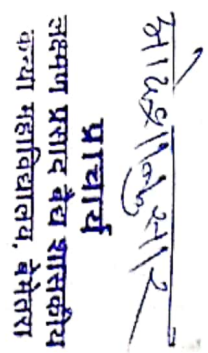 आदेशानुसार
प्राचार्य
लक्ष्मण प्रसाद वैद्य शासकीय
कन्या महाविद्यालय, बेमेतरा